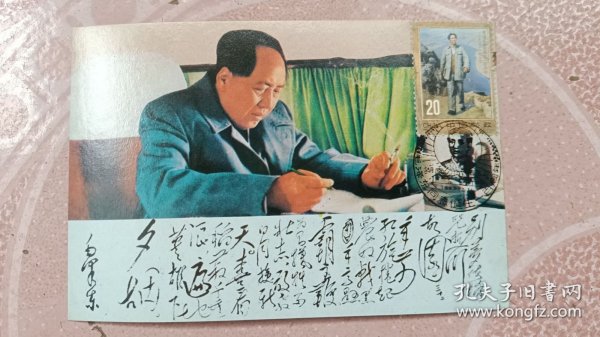 20
别梦依稀
咒逝川
故园三
年前
红旗卷起
农奴戟黑
手高悬
霸主鞭
为有牺牲多
壮志敢教
日月换新
天喜看
稻菽千重
浪遍地
英雄下
夕烟
毛泽东
孔夫子旧书网
kongfz.com